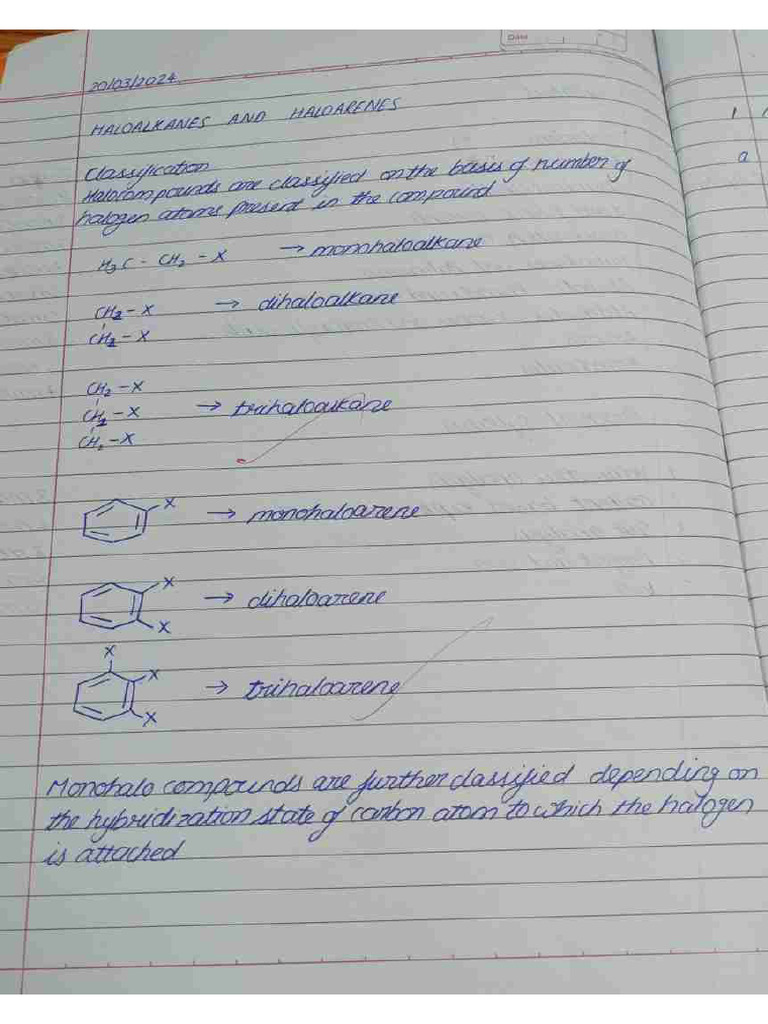 Date
20/03/2024
HALOALKANES AND HALOARENES
Classification
Halocompounds are classified on the basis of number of
halogen atoms present in the compound
H3C - CH2 - X → monohaloalkane
CH2 - X → dihaloalkane
CH2 - X
CH2 - X
CH2 - X → trihaloalkane
CH2 - X
X → monohaloarene
X → dihaloarene
X
X
X → trihaloarene
X
Monohalo compounds are further classified depending on
the hybridization state of carbon atom to which the halogen
is attached
1
a